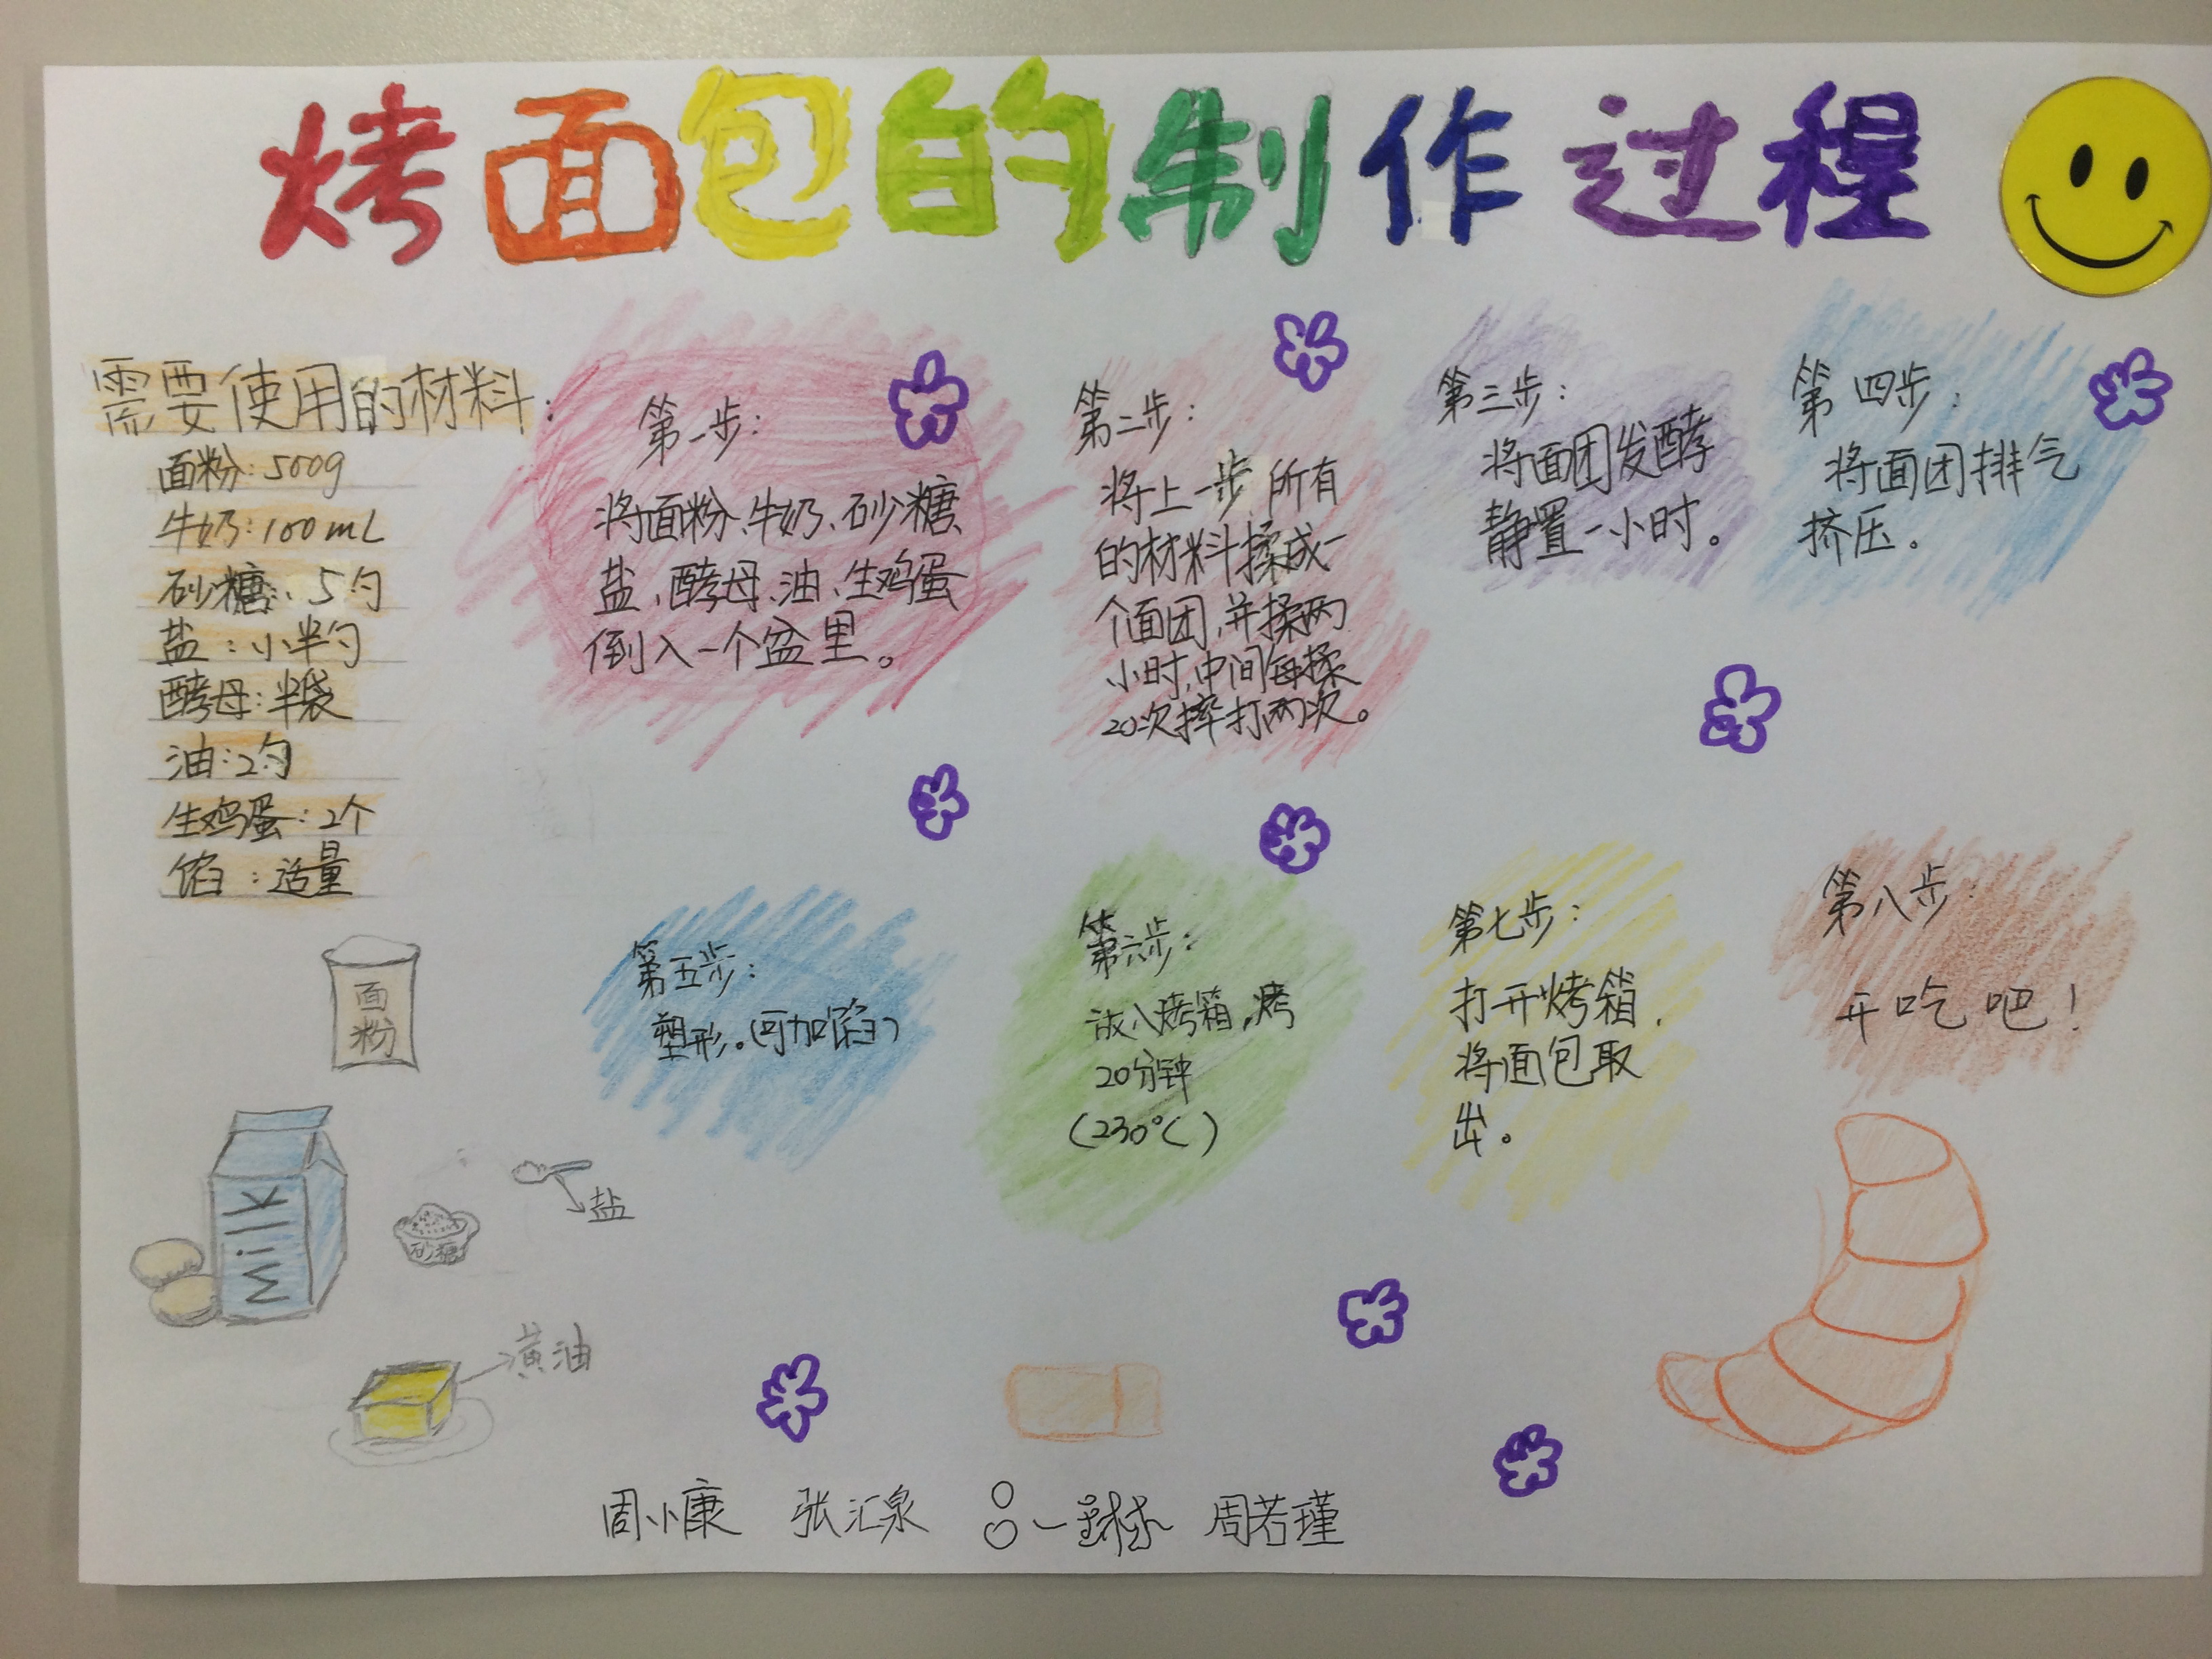 烤面包的制作过程
需要使用的材料:
面粉:500g
牛奶:100mL
砂糖:5勺
盐:小半勺
酵母:半袋
油:2勺
生鸡蛋:2个
馅:适量
第一步:
将面粉、牛奶、砂糖、
盐、酵母、油、生鸡蛋
倒入一个盆里。
第二步:
将上一步所有
的材料揉成一
个面团,并揉两
小时,中间每揉
20次摔打两次。
第三步:
将面团发酵
静置一小时。
第四步:
将面团排气
挤压。
第五步:
塑形。(可加馅)
第六步:
放入烤箱,烤
20分钟
(230℃)
第七步:
打开烤箱,
将面包取
出。
第八步:
开吃吧!
面
粉
Milk
砂糖
盐
黄油
周小康 张汇泉 周若瑾